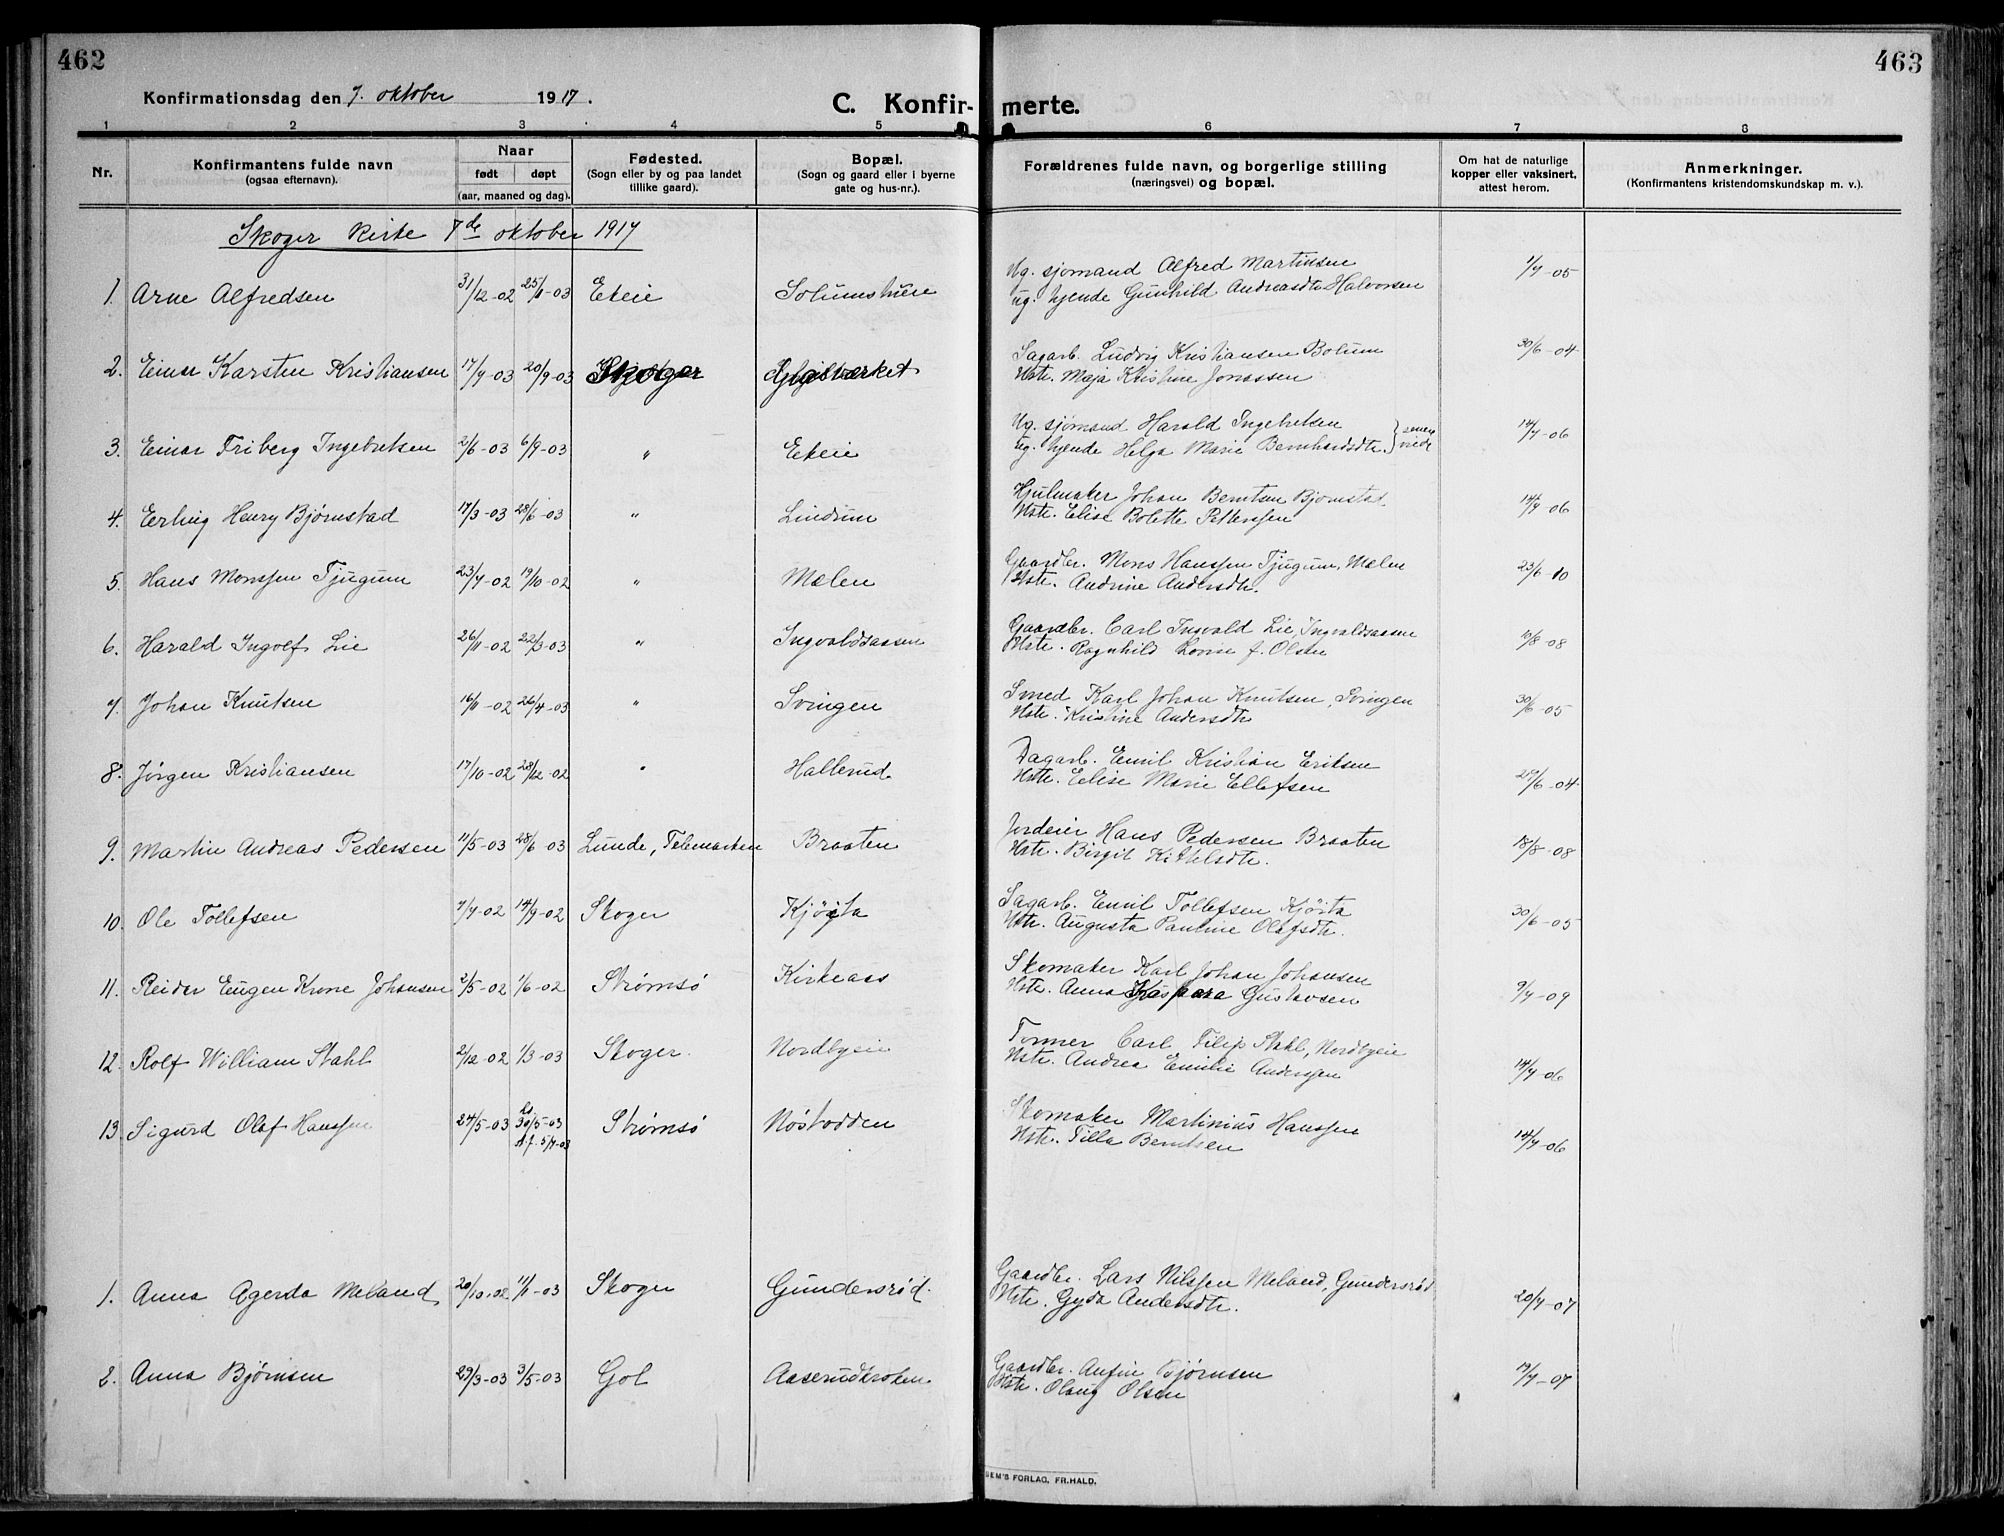 462
463
Konfirmationsdag den 7. oktober 1917.
C. Konfirmerte.
1 2 3 4 5 6 7 8
Nr.
Konfirmantens fulde navn (ogsaa efternavn).
Naar født døpt (aar, maaned og dag).
Fødested. (Sogn eller by og paa landet tillike gaard).
Bopæl. (Sogn og gaard eller i byerne gate og hus-nr.).
Forældrenes fulde navn, og borgerlige stilling (næringsvei) og bopæl.
Om hat de naturlige kopper eller vaksinert, attest herom.
Anmerkninger. (Konfirmantens kristendomskundskap m. v.).
Skoger Kirke 7de oktober 1917
1. Arne Alfredsen 31/12-02 25/1-03 Ekeie Solumshuse Ug. sjømand Alfred Martinsen 1/7-05
ug. tjende Gunhild Andreasdtr Halvorsen
2. Einar Karsten Kristiansen 17/7-03 20/9-03 Skoger Gjgilværket Sagarb. Ludvig Kristiansen Bolum 30/6-04
Hstr. Maja Kristine Jonassen
3. Einar Friberg Ingebretsen 2/6-03 6/9-03 " Ekeie Ug. sjømand Harald Ingebretsen 14/7-06
ug. tjende Helga Marie Bernhardsdtr.
4. Erling Henry Bjørnstad 17/3-03 28/6-03 " Lindum Hjulmaker Johan Berntsen Bjørnstad. 14/7-06
Hstr. Elise Bolette Pettersen
5. Hans Monssen Tjugum 23/7-02 19/10-02 " Mælen Gaardbr. Mons Hanssen Tjugum, Mælen 23/6-10
Hstr. Andrine Andersdtr.
6. Harald Ingolf Lie 26/11-02 22/3-03 " Ingvaldsaasen Gaardbr. Carl Ingvald Lie, Ingvaldsaasen 10/8-08
Hstr. Ragnhild Lovise f. Olsen
7. Johan Knutsen 16/11-02 26/4-03 " Svingen Smed Karl Johan Knutsen, Svingen 30/6-05
Hstr. Kristine Andersdtr
8. Jørgen Kristiansen 17/10-02 28/12-02 " Hallerud Dagarb. Emil Kristian Eriksen 29/6-04
Hstr. Elise Marie Ellefsen
9. Martin Andreas Pedersen 11/5-03 28/6-03 Lunde, Telemarken Braaten Jordeier Hans Pedersen Braaten 18/8-08
Hstr. Birgit Kittilsdtr.
10. Ole Tollefsen 7/7-02 14/9-02 Skoger Kjøsta Sagarb. Emil Tollefsen Kjøsta 30/6-05
Hstr. Augusta Pauline Olafsdtr.
11. Reidar Eugen Krone Johansen 2/5-02 1/6-02 Strømsø Kirkeaas Skomaker Karl Johan Johansen 9/7-09
Hstr. Anna Kaspara Gustavsen
12. Rolf William Stahl 2/12-02 1/3-03 Skoger. Nordbyeie Former Carl Filip Stahl, Nordbyeie 14/7-06
Hstr. Andrea Emilie Anderssen
13. Sigurd Olaf Hanssen 24/5-03 30/5-03 Strømsø Nøstodden Skomaker Martinius Hanssen 14/7-06
Hstr. Tilla Berntsen
1. Anna Agerda Meland 20/10-02 11/1-03 Skoger Gundersrød. Gaardbr. Lars Nilssen Meland, Gundersrød 20/7-07
Hstr. Gyda Andersdtr.
2. Anna Bjørnsen 29/3-03 3/5-03 Gol Aaserudkroken Gaardbr. Anfin Bjørnsen 19/7-07
Hstr. Olaug Olsen
SEM'S FORLAG, FR.HALD.